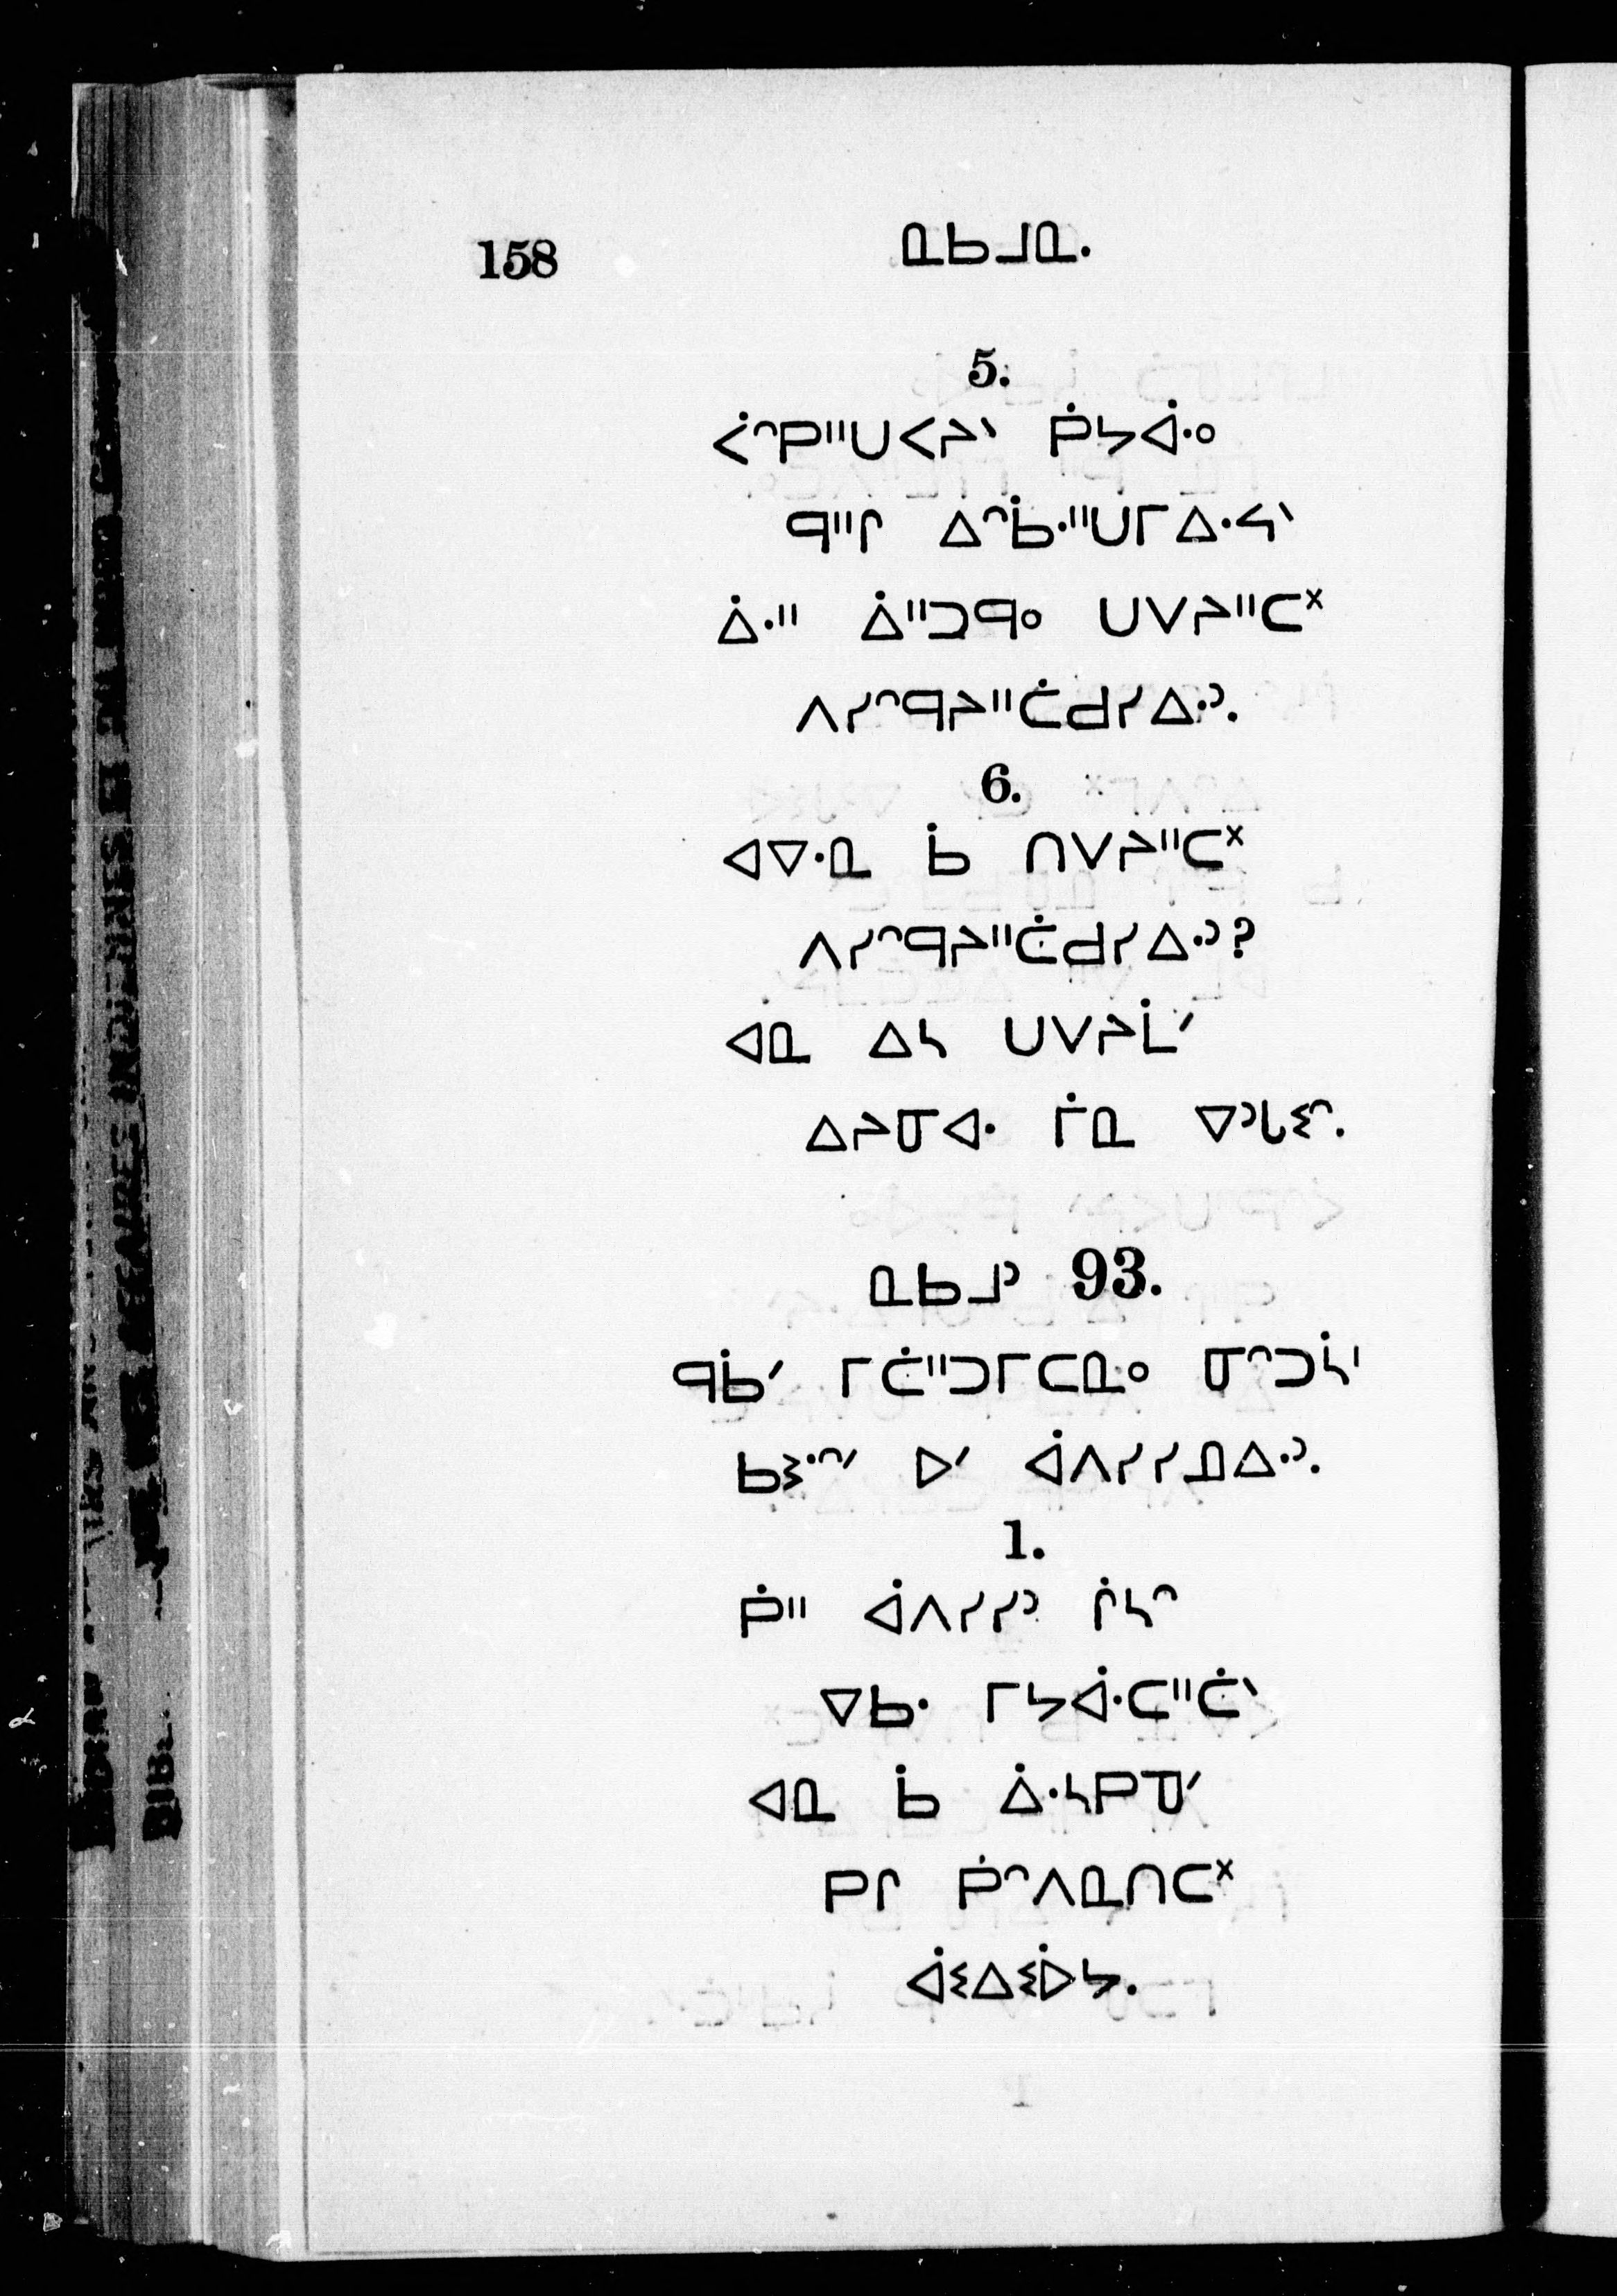 158 ᓇᑲᒧᓇ.
5.
ᐹᐢᑭᐦᑌᐸᔨᐠ ᑮᔭᐚᐤ
ᑫᐦᒋ ᐃᐢᑳᐧᐦᑌᒥᐃᐧᓴᐠ
ᐄᐧᐦ ᐄᐦᑐᑫᐤ ᑌᐯᔨᐦᑕᕽ
ᐱᓯᐢᑫᔨᐦᑖᑯᓯᐃᐧᐣ.
6.
ᐊᐁᐧᓇ ᑳ ᑎᐯᔨᐦᑕᕽ
ᐱᓯᐢᑫᔨᐦᑖᑯᓯᐃᐧᐣ?
ᐊᓇ ᐃᓴ ᑌᐯᔨᒫᐟ
ᐃᔨᓂᐊᐧ ᒦᓇ ᐁᐣᒐᓬᐢ.
ᓇᑲᒧᐣ 93.
ᑫᑳᐟ ᒥᑖᐦᑐᒥᑕᓇᐤ ᓂᐢᑐᓵᑊ
ᑲᕒᐧᐢᐟ ᐅᐟ ᐋᐱᓯᓯᓄᐃᐧᐣ.
1.
ᑮᐦ ᐋᐱᓯᓯᐣ ᒌᓴᐢ
ᐁᑲᐧ ᒥᔭᐚᑕᐦᑖᐠ
ᐊᓇ ᑳ ᐄᐧᓴᑭᓀᐟ
ᑭᒋ ᑮᐢᐱᓇᑎᑕᕽ
ᐋᓬᐃᓬᐆᔭ.